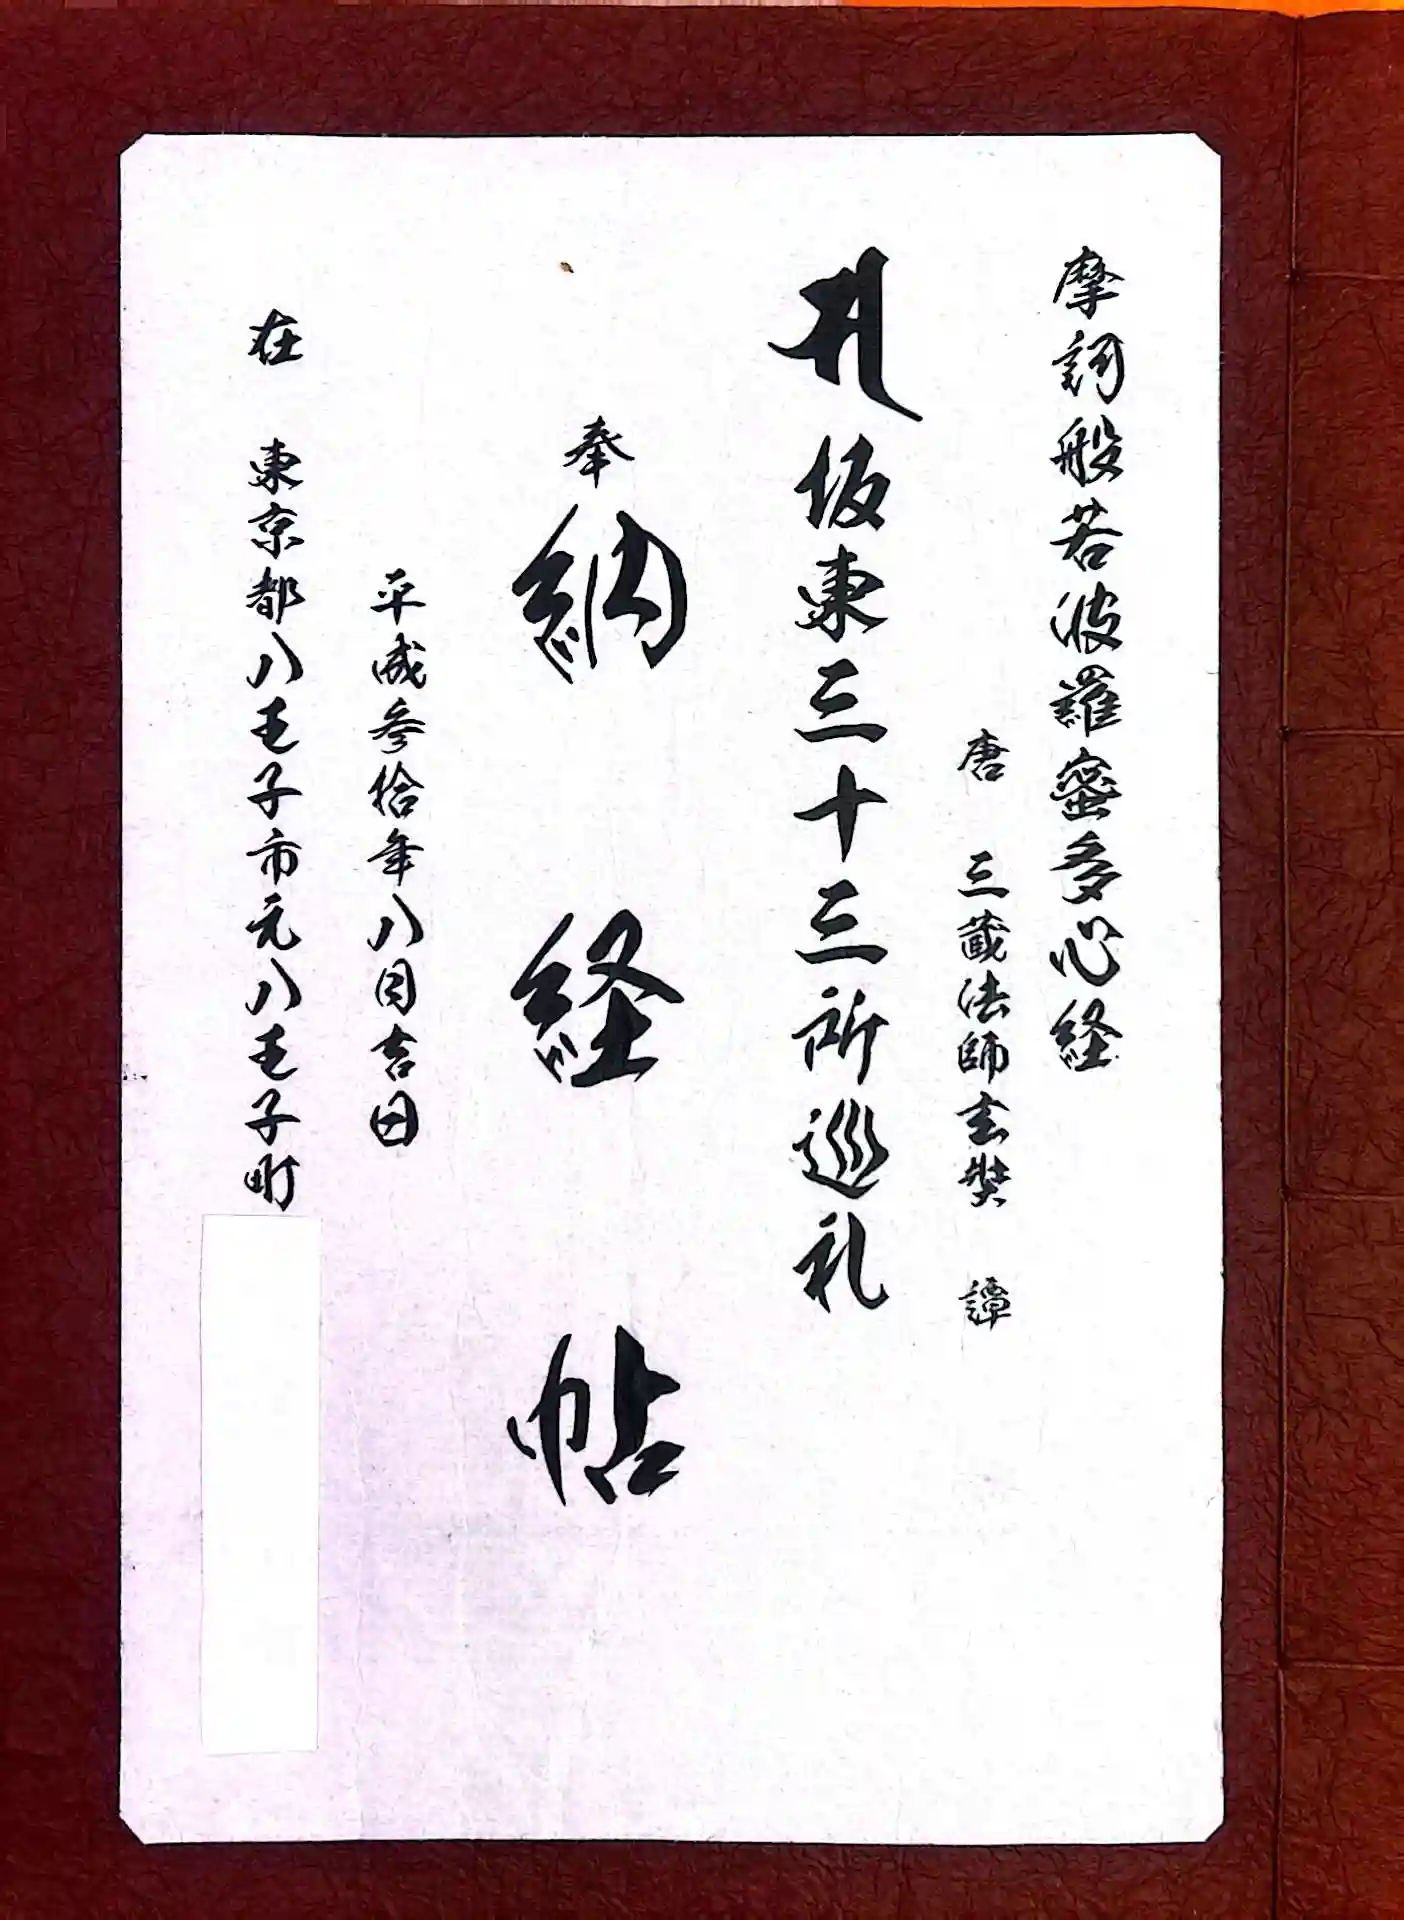 摩訶般若波羅蜜多心経
唐 三蔵法師玄奘 譚
𑖭 坂東三十三所巡礼
奉納経帖
平成参拾年八月吉日
在 東京都八王子市元八王子町